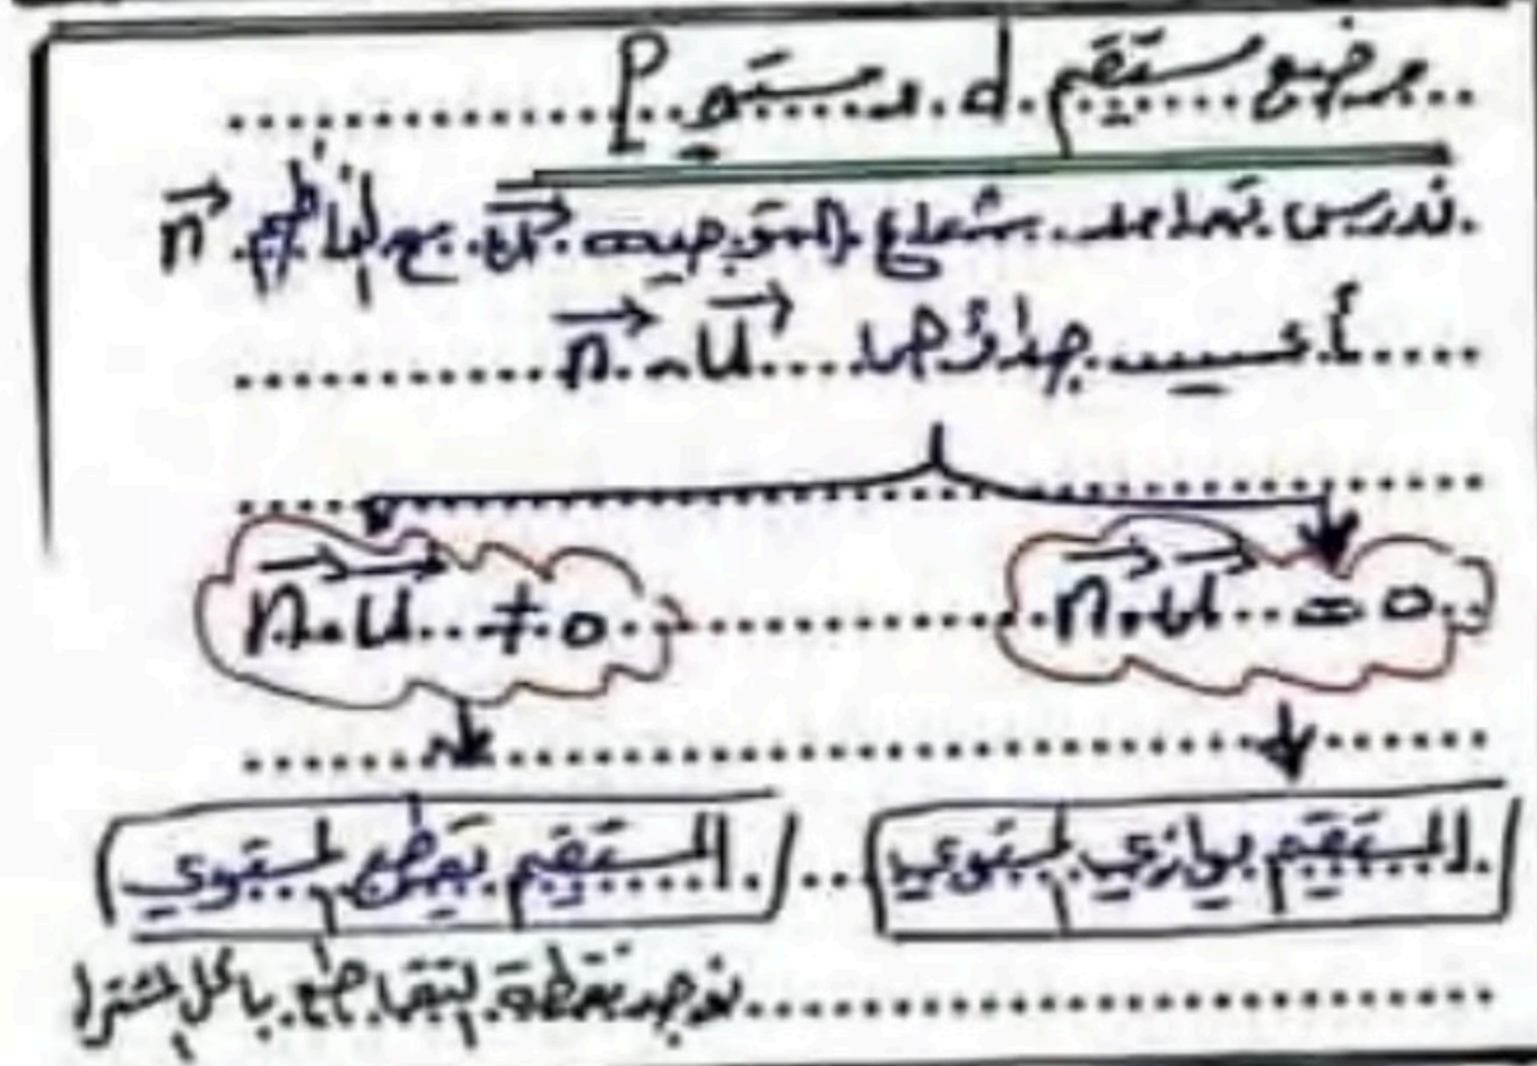 وضع مستقيم d ومستو P
ندرس تعامد شعاع التوجيه u⃗ مع الناظم n⃗
أحسب جداؤهما n⃗ . u⃗
n⃗ . u⃗ = 0
n⃗ . u⃗ ≠ 0
المستقيم يوازي المستوي
المستقيم يقطع المستوي
نوجد نقطة التقاطع بالحل المشترك